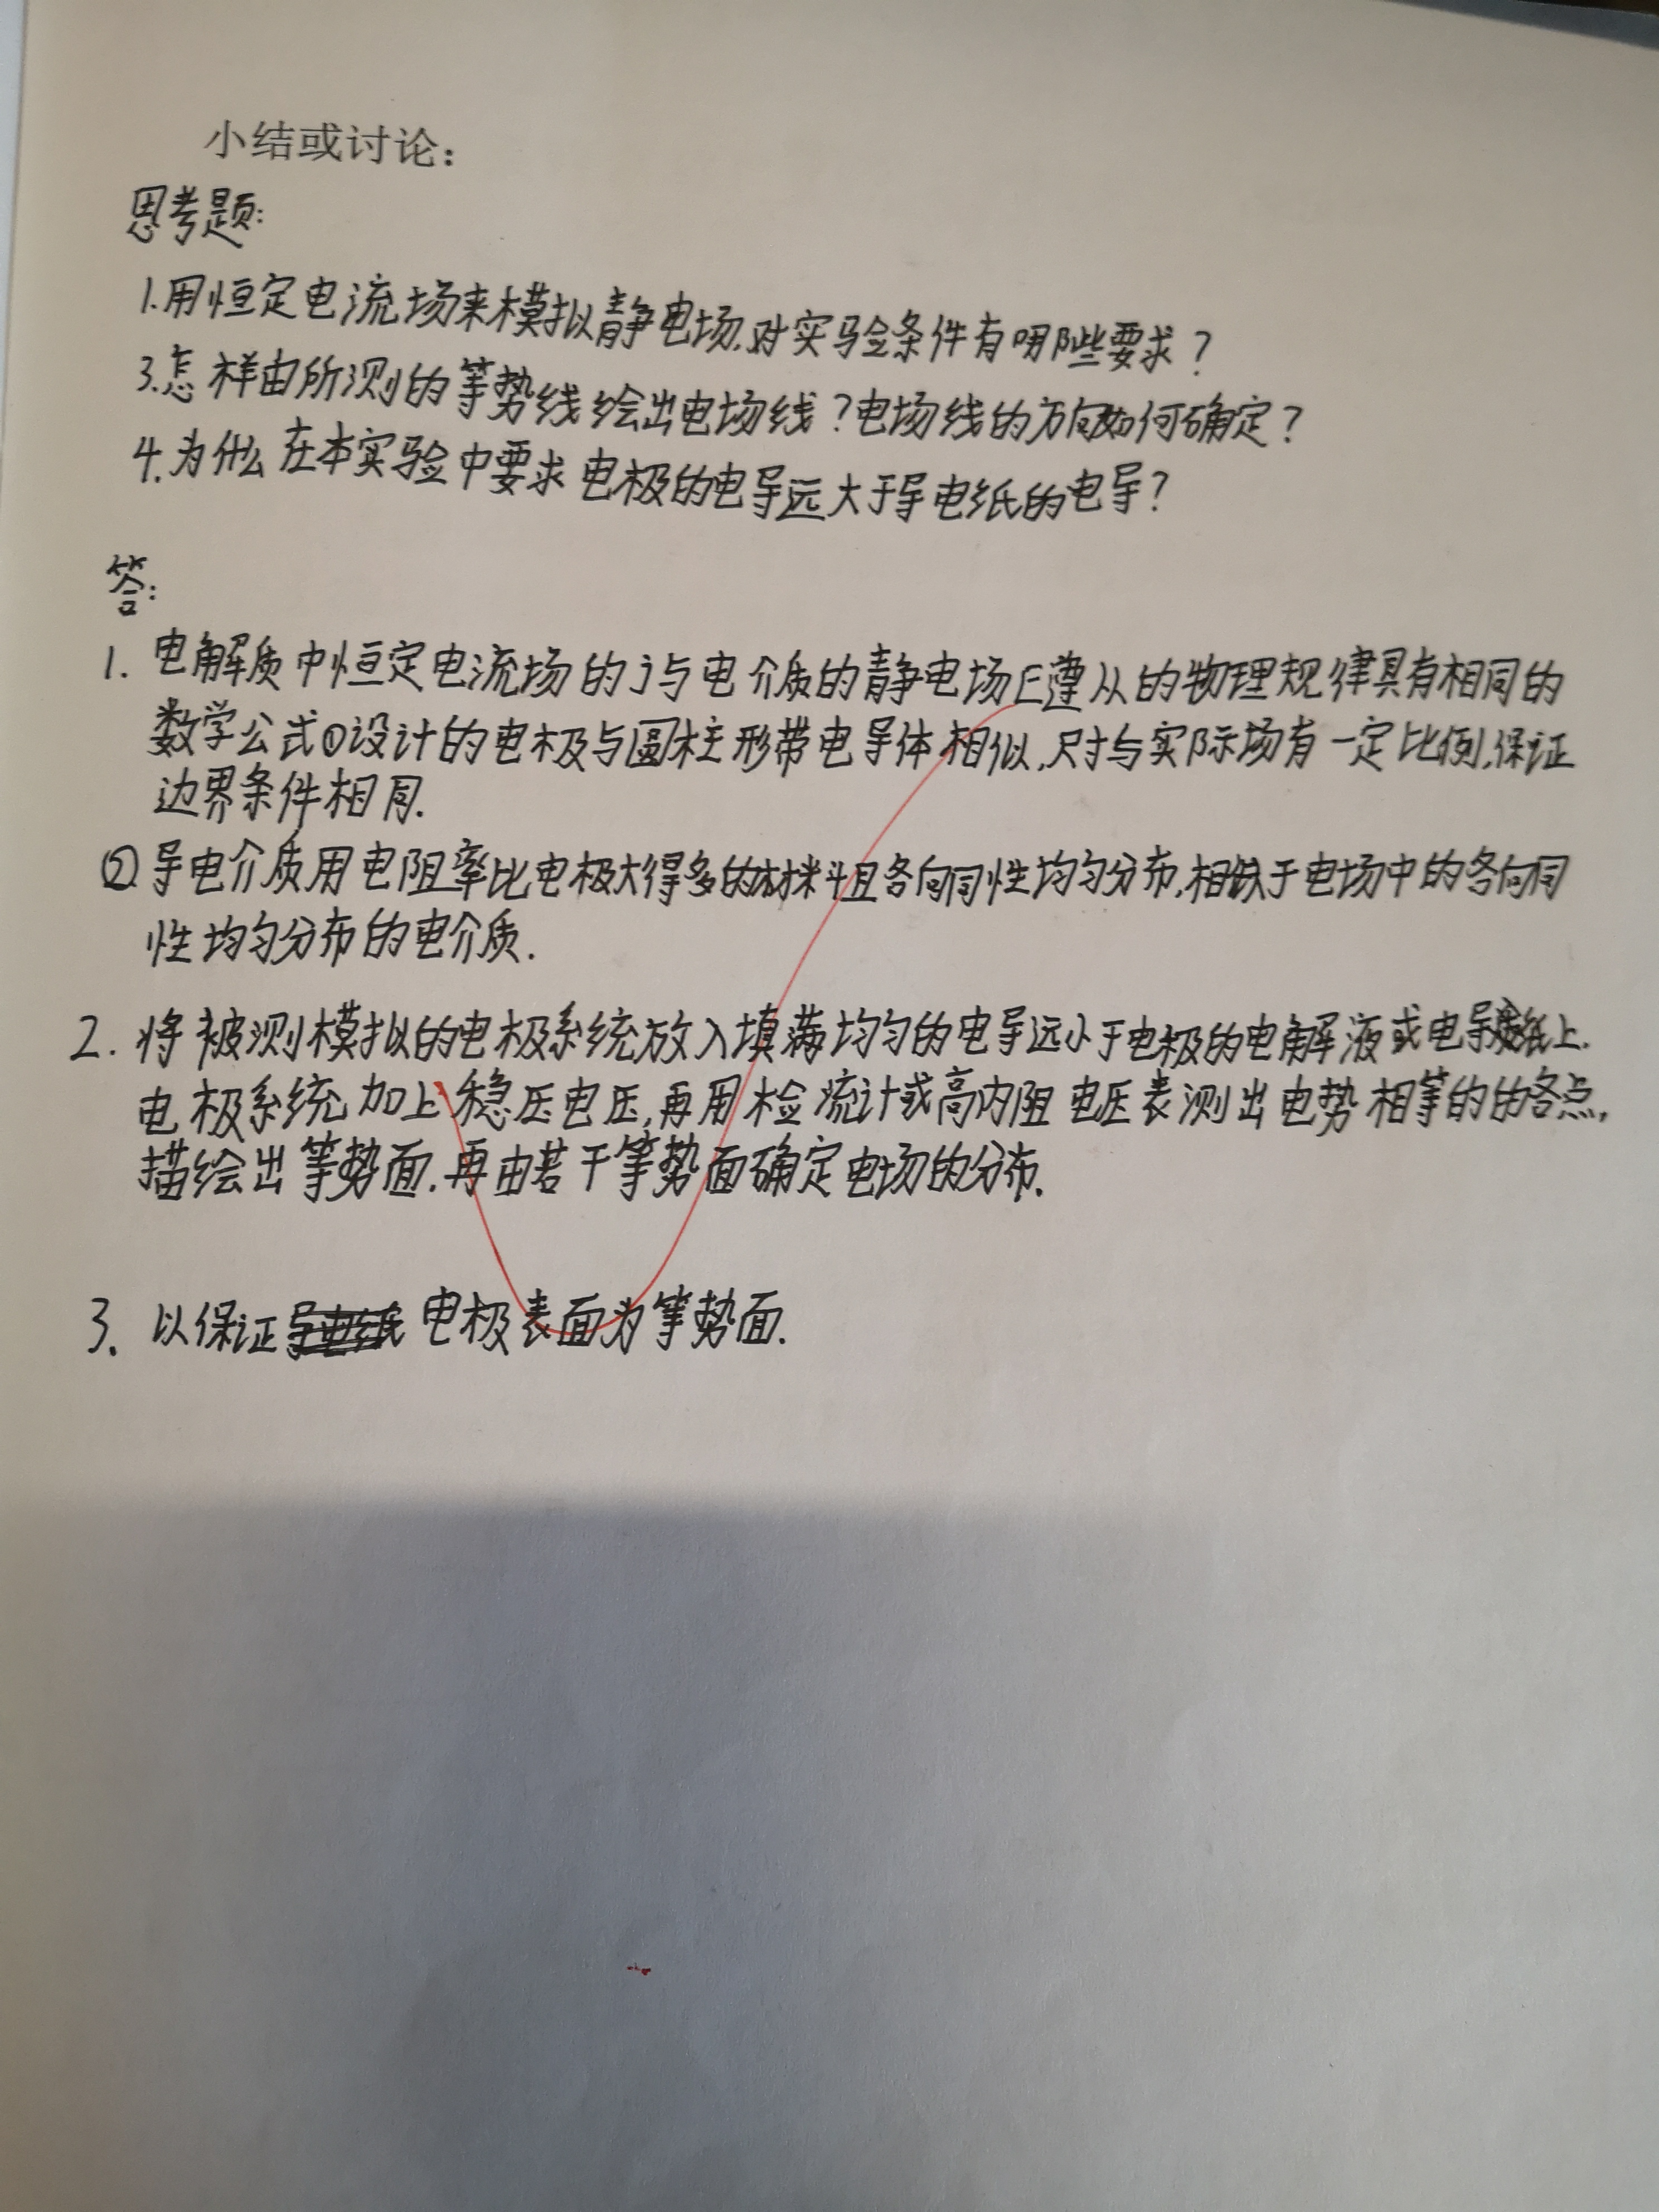 小结或讨论：
思考题：
1.用恒定电流场来模拟静电场,对实验条件有哪些要求？
3.怎样由所测的等势线绘出电场线？电场线的方向如何确定？
4.为什么在本实验中要求电极的电导远大于导电纸的电导？
答：
1. 电解质中恒定电流场的j与电介质的静电场E遵从的物理规律具有相同的
数学公式①设计的电极与圆柱形带电导体相似,尺寸与实际场有一定比例,保证
边界条件相同.
②导电介质用电阻率比电极大得多的材料且各向同性均匀分布,相似于电场中的各向同
性均匀分布的电介质.
2. 将被测模拟的电极系统放入填满均匀的电导远小于电极的电解液或电导纸上.
电极系统加上稳压电压,再用检流计或高内阻电压表测出电势相等的的各点,
描绘出等势面.再由若干等势面确定电场的分布.
3. 以保证电极表面为等势面.